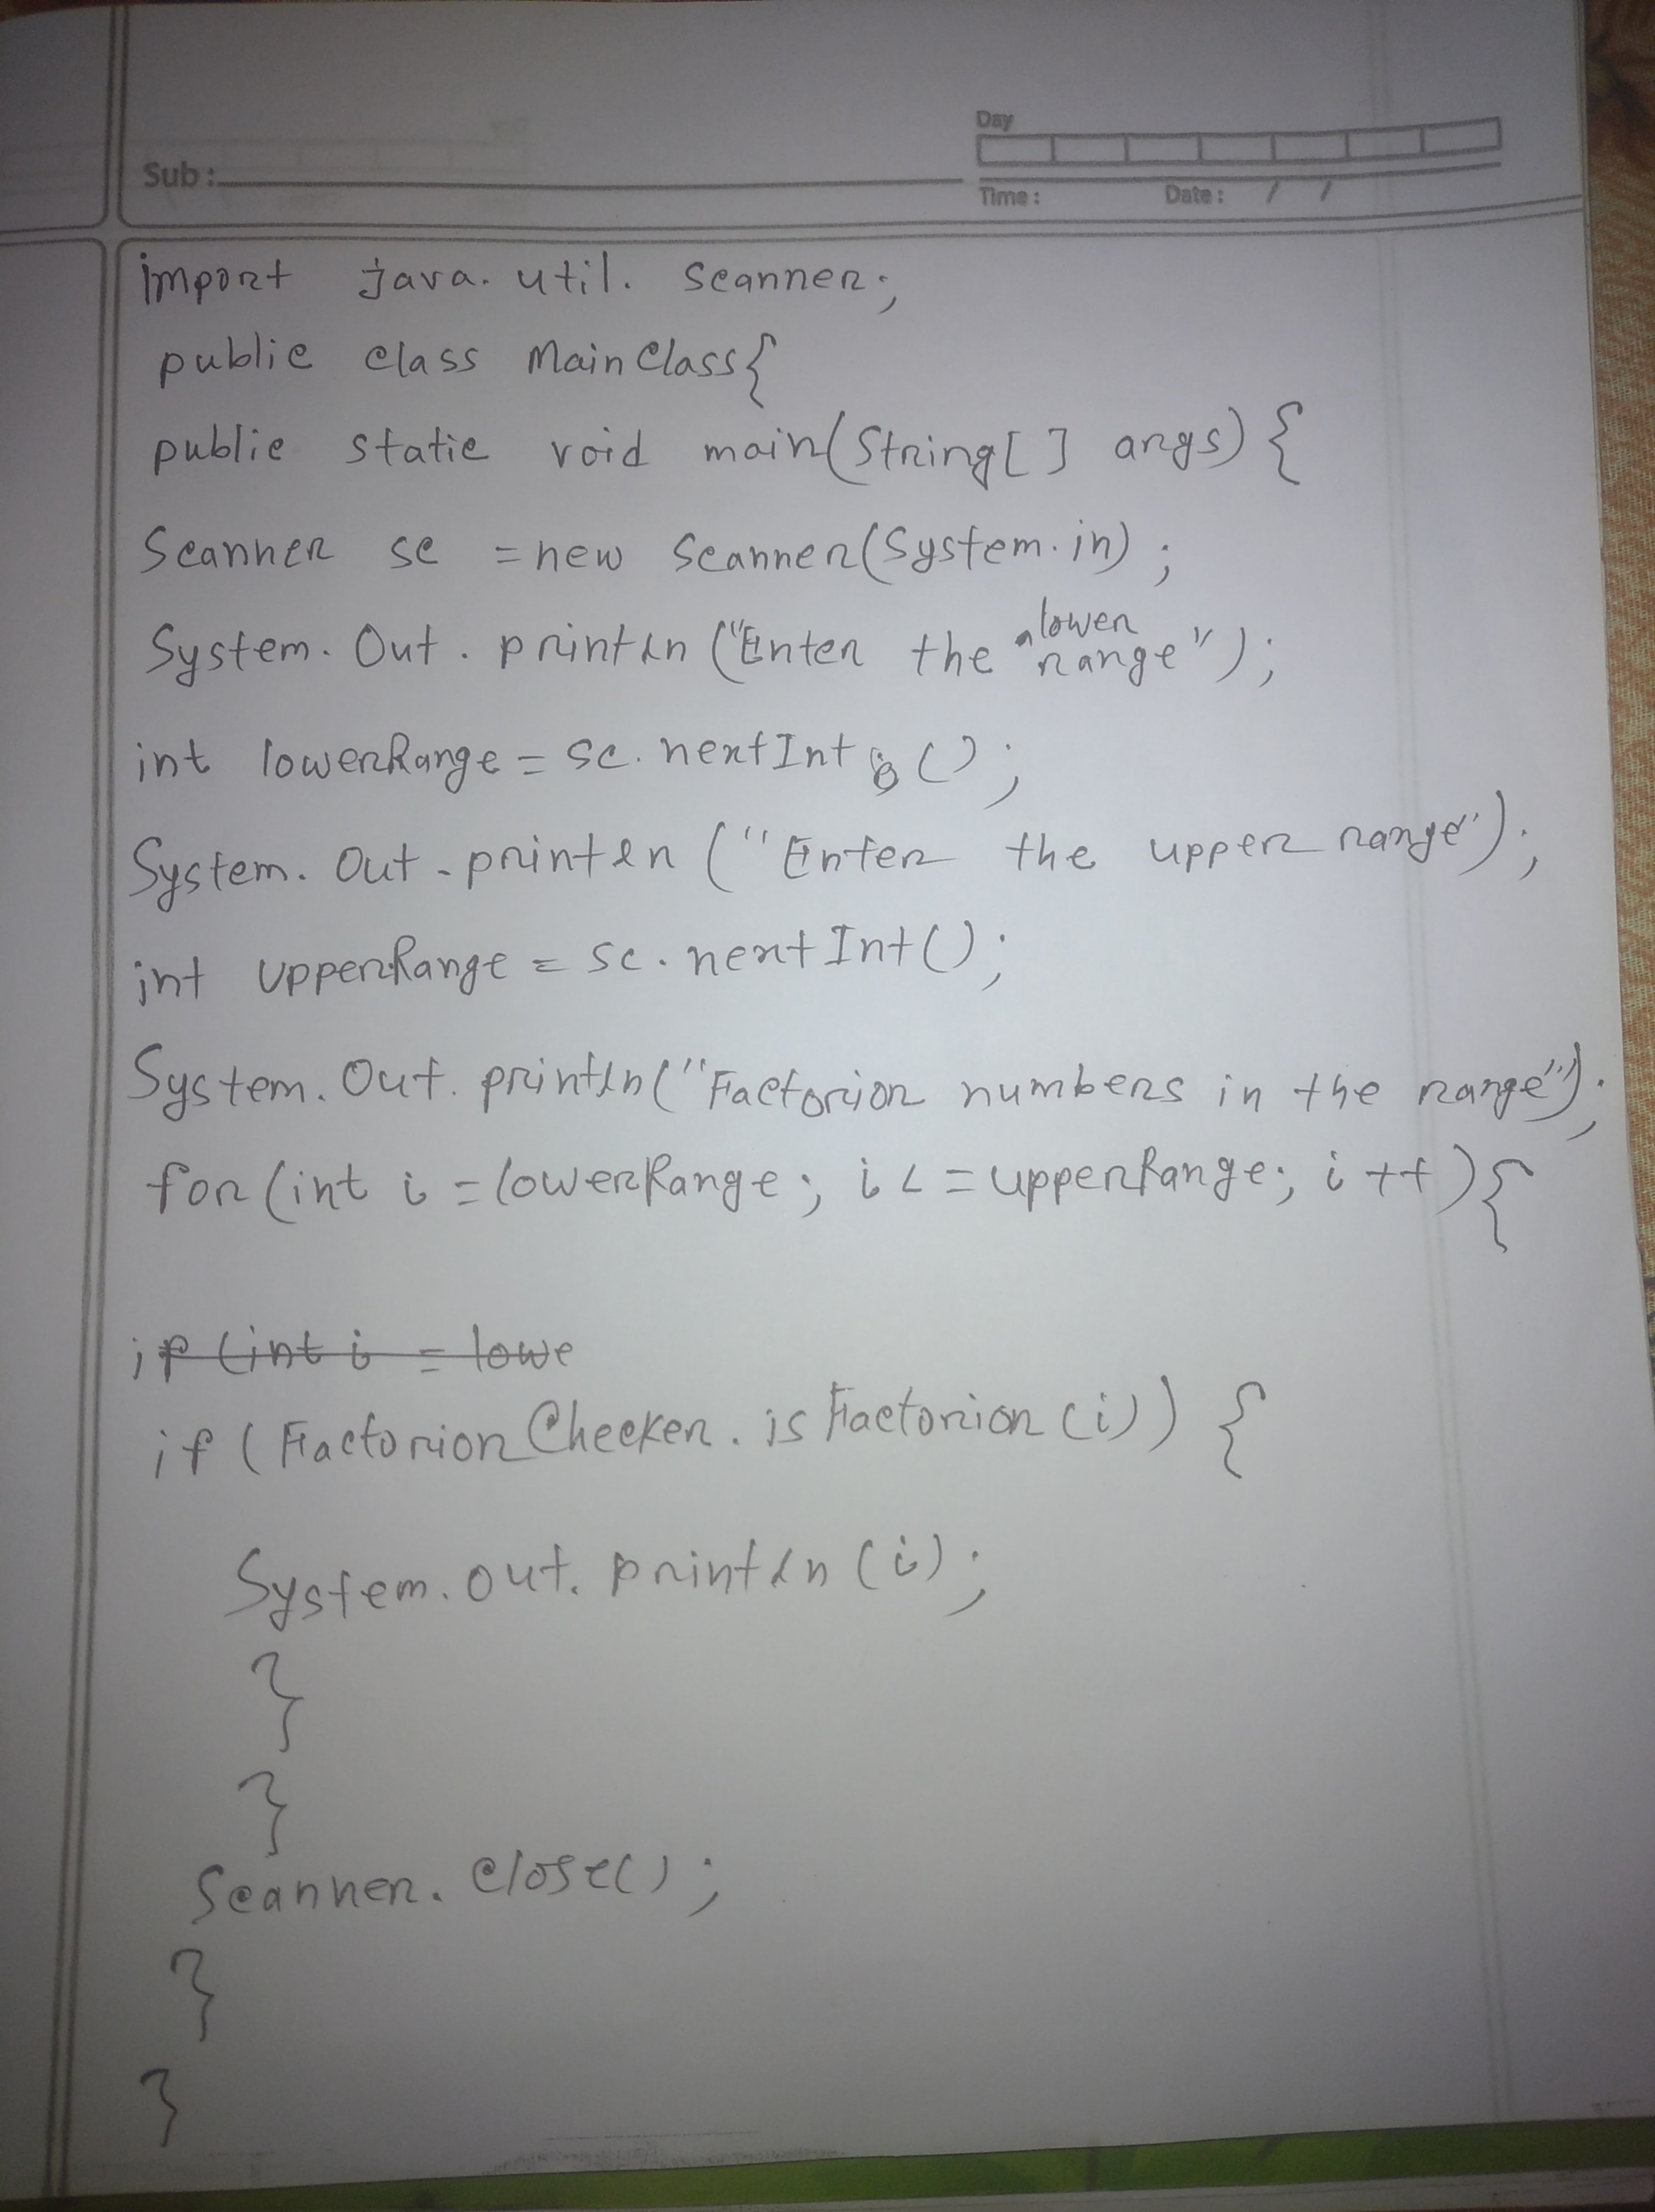 Day
Sub :
Time : Date : / /
import java.util.scanner;
public class MainClass{
public static void main(String[] args){
Scanner sc = new Scanner(System.in);
System.Out.println("Enter the lower range");
int lowerRange = sc.nextInt();
System.Out.println("Enter the upper range");
int upperRange = sc.nextInt();
System.Out.println("Factorion numbers in the range");
for(int i = lowerRange; i <= upperRange; i++){
if (int i = lowe
if (FactorionChecker.isFactorion(i)) {
System.out.println(i);
}
}
Scanner.close();
}
}